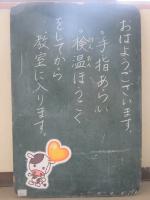 おはようございます。
・手指あらい
・検温ほうこく
けんおん
をしてから
教室に入ります。